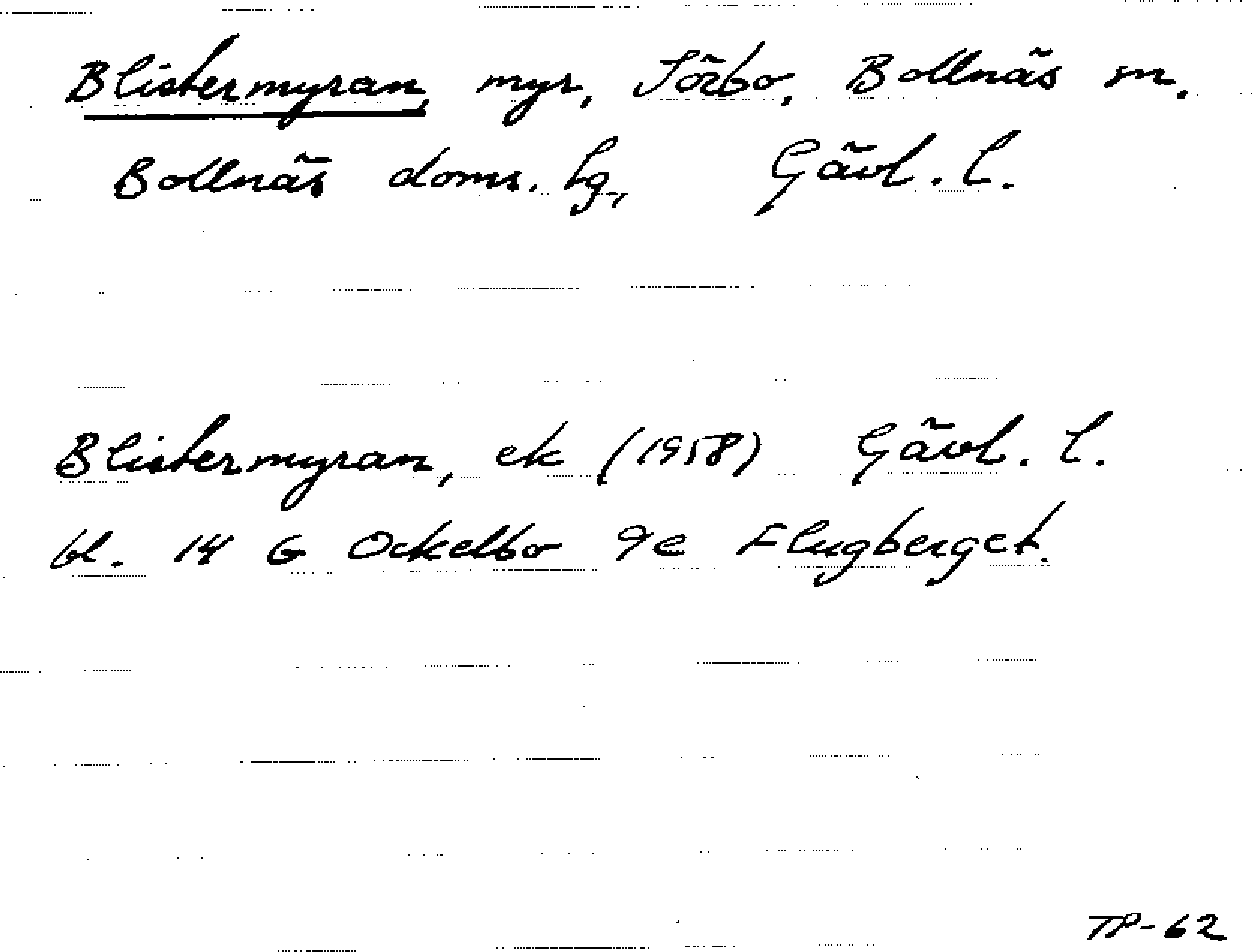 Blistermyran, myr, Sörbo, Bollnäs sn,
Bollnäs doms. hg, Gävl. l.
Blistermyran, ek (1958) Gävl. l.
bl. 14 G Ockelbo 9e Flugberget.
TP-62